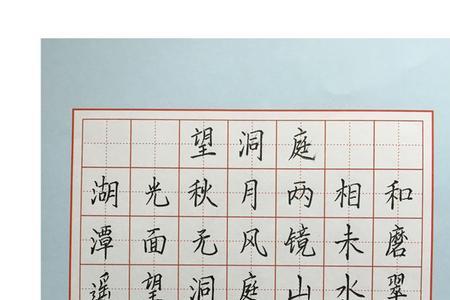 望洞庭
湖光秋月两相和
潭面无风镜未磨
遥望洞庭山水翠